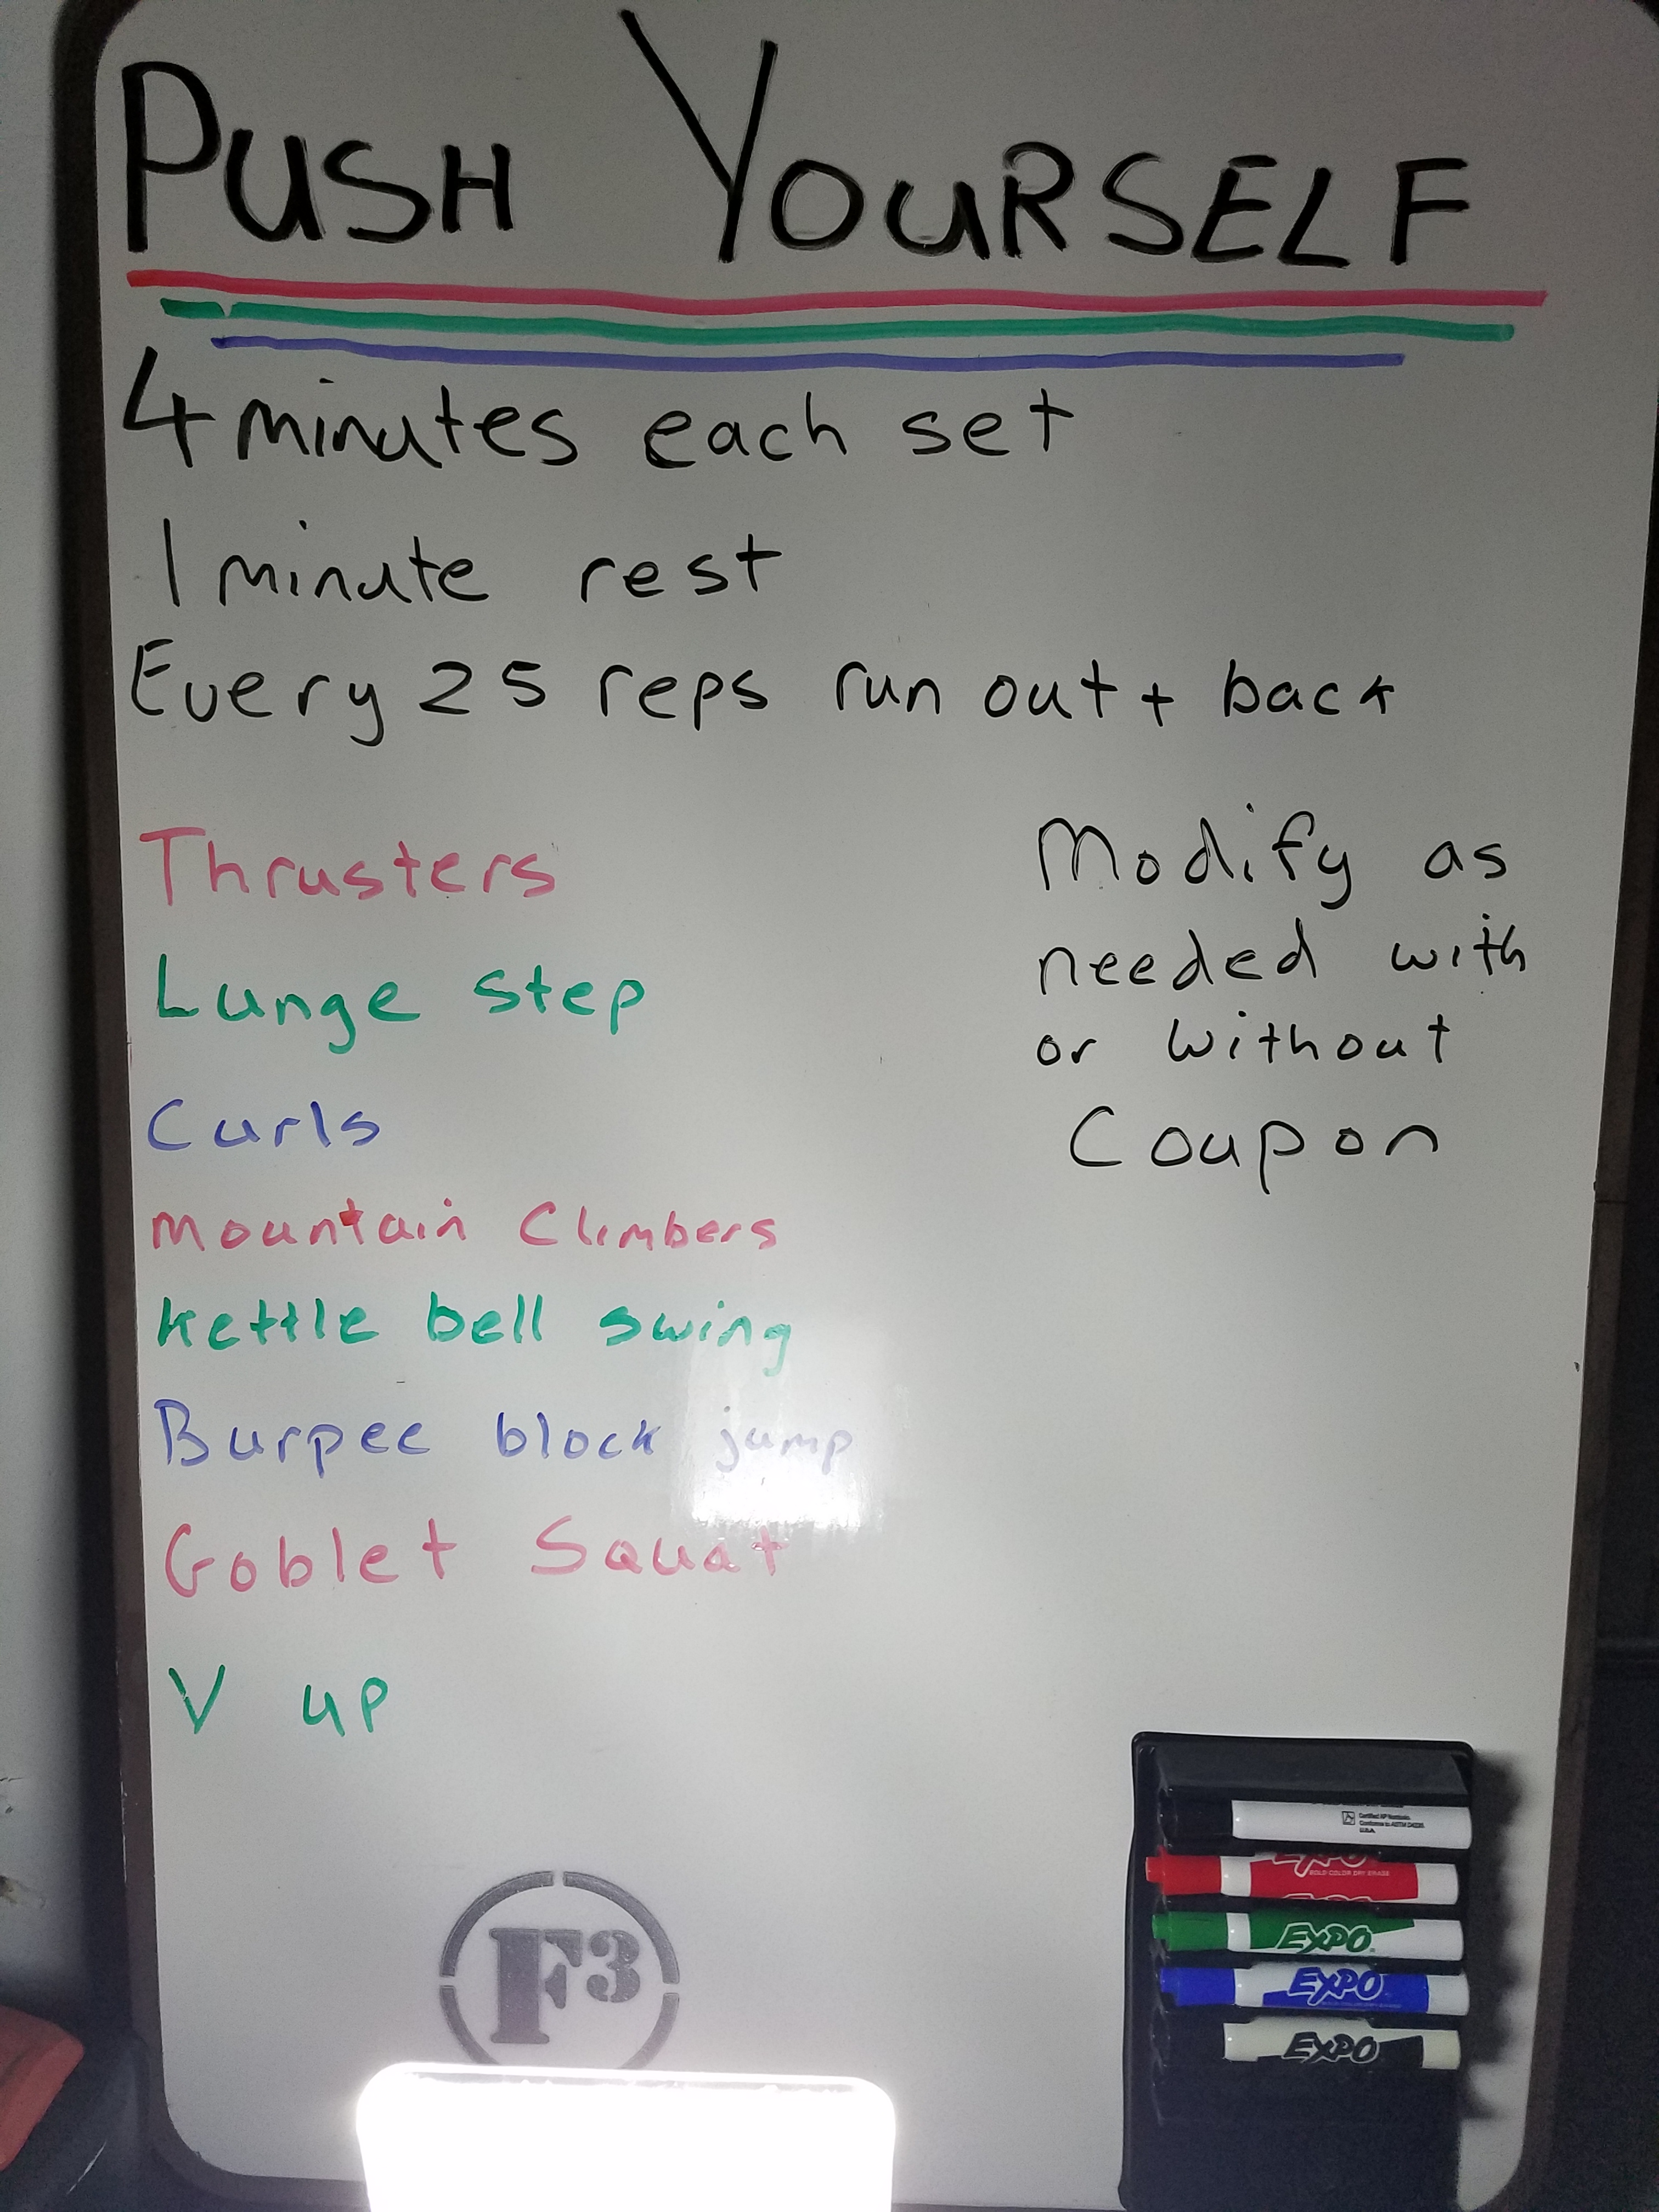 PUSH YOURSELF
4 minutes each set
1 minute rest
Every 25 reps run out + back
Thrusters
Lunge step
Curls
Mountain Climbers
Kettle bell swing
Burpee block jump
Goblet Squat
V up
Modify as
needed with
or without
Coupon
F3
U.S.A.
EXPO
BOLD COLOR DRY ERASE
EXPO
EXPO
EXPO